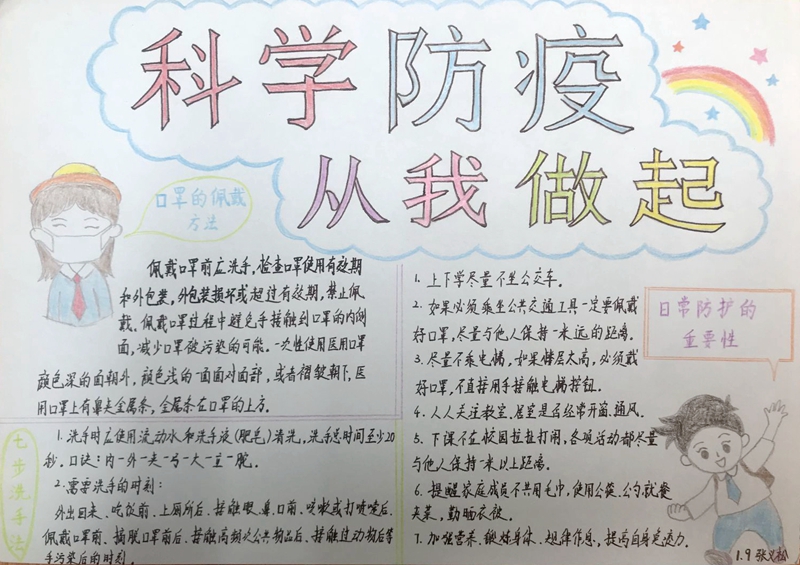 科学防疫
从我做起
口罩的佩戴
方法
佩戴口罩前应洗手,检查口罩使用有效期
和外包装,外包装损坏或超过有效期,禁止佩
戴。佩戴口罩过程中避免手接触到口罩的内侧
面,减少口罩被污染的可能。一次性使用医用口罩
颜色深的面朝外,颜色浅的一面面对面部,或者褶皱朝下,医
用口罩上有鼻夹金属条,金属条在口罩的上方。
七步洗手法
1.洗手时应使用流动水和洗手液(肥皂)清洗,洗手总时间至少20
秒。口诀:内-外-夹-弓-大-立-腕。
2.需要洗手的时刻:
外出回来、吃饭前、上厕所后、接触眼、鼻、口前、咳嗽或打喷嚏后、
佩戴口罩前、摘脱口罩前后、接触高频次公共物品后、接触过动物后等
手污染后的时刻。
1.上下学尽量不坐公交车。
2.如果必须乘坐公共交通工具一定要佩戴
好口罩,尽量与他人保持一米远的距离。
3.尽量不乘电梯,如果楼层太高,必须戴
好口罩,不直接用手接触电梯按钮。
4.人人关注教室,甚至是否经常开窗、通风。
5.下课不在校园拉拉打闹,各项活动都尽量
与他人保持一米以上距离。
6.提醒家庭成员不共用毛巾,使用公筷、公勺就餐
夹菜,勤晒衣被。
7.加强营养、锻炼身体、规律作息,提高自身免疫力。
日常防护的
重要性
1.9 张